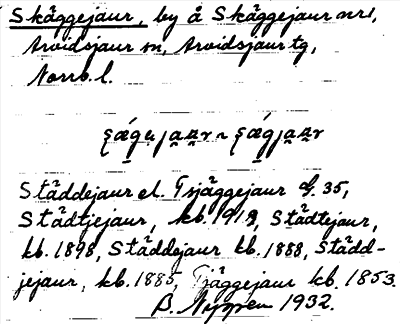 Skäggejaur, by å Skäggejaur nr 1,
Arvidsjaur sn, Arvidsjaur tg,
Norrb. l.
Städdejaur el. Tjäggejaur 35,
Städtjejaur, kb. 1919, Städtejaur,
kb. 1898, Städdejaur kb. 1888, Städd-
jejaur, kb. 1885, Tjäggejaur kb. 1853.
1932.